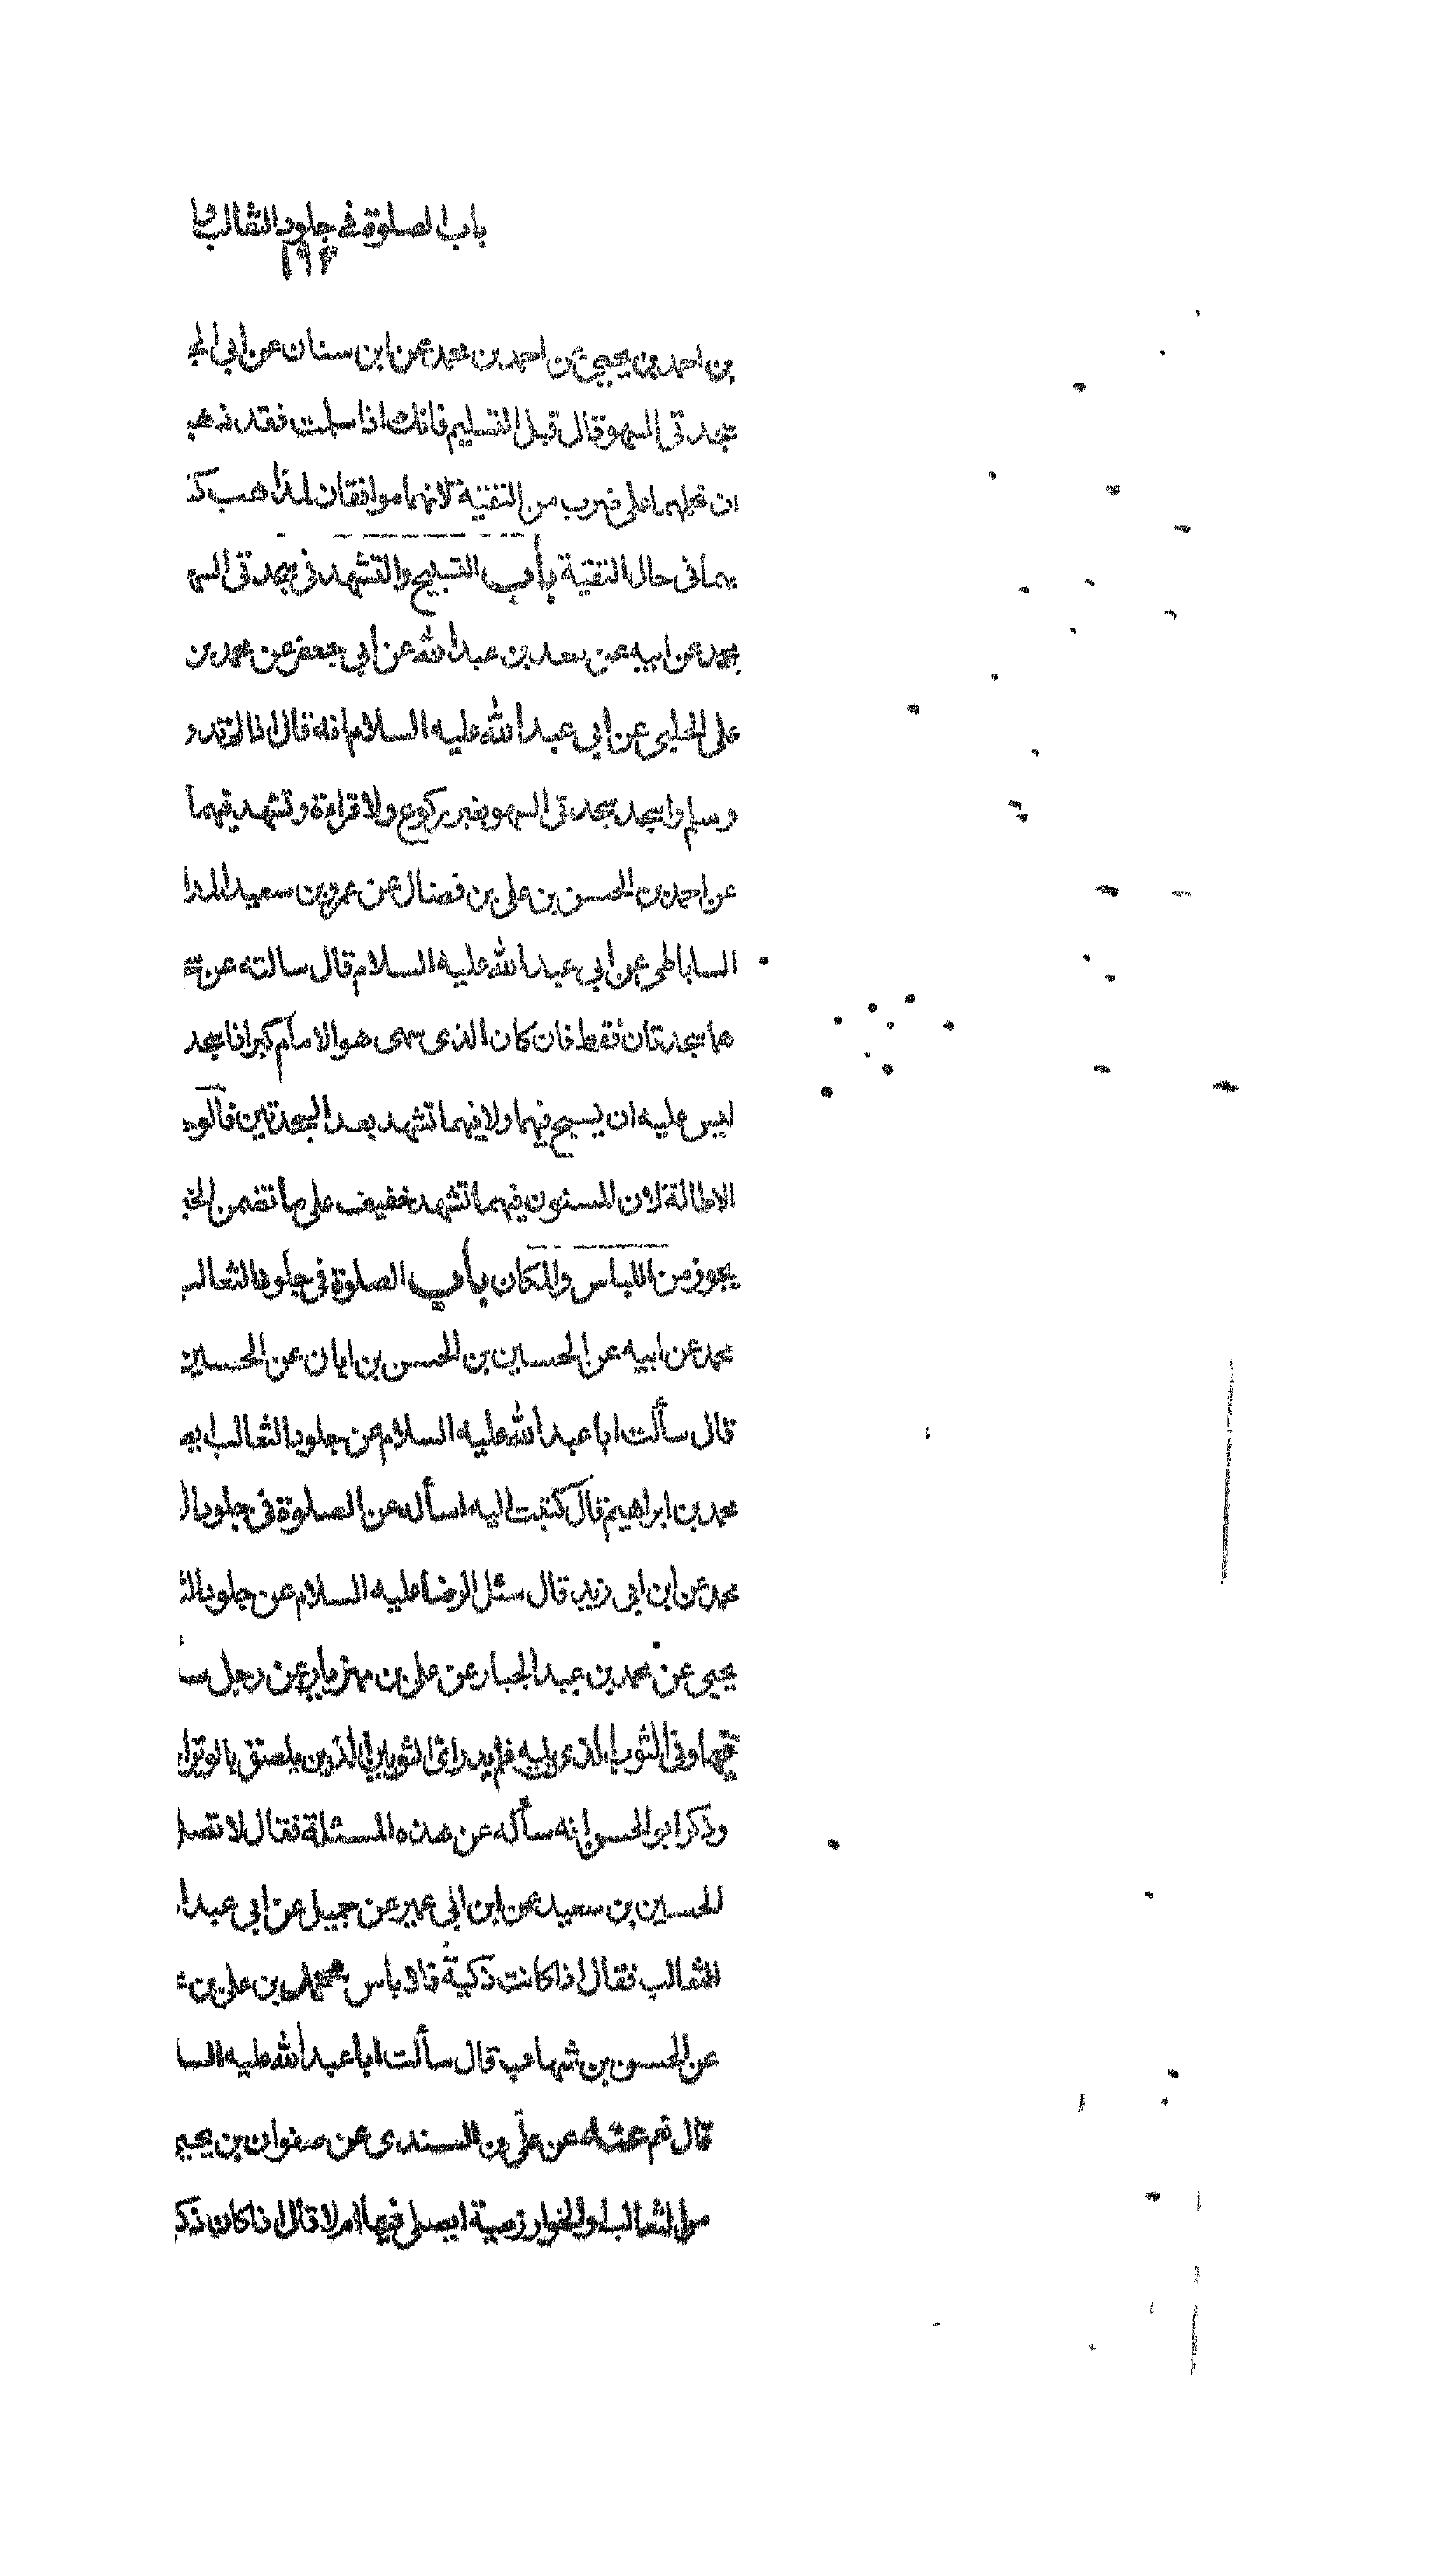 باب الصلوة في جلود الثعالب وا
١٩٣
بن احمد بن يحيى عن احمد بن محمد عن ابن سنان عن ابي الج
سجدتي السهو قال قبل التسليم فانك اذا سلمت فقد ذهب
ان نحملهما على ضرب من التقية لانهما موافقان لمذاهب كث
بهما في حال التقية باب التسبيح والتشهد في سجدتي السه
محمد عن ابيه عن سعد بن عبد الله عن ابي جعفر عن محمد بن
علي الحلبي عن ابي عبد الله عليه السلام انه قال اذا لم تدر
وسلم واسجد سجدتي السهو بغير ركوع ولا قراءة وتشهد فيهما
عن احمد بن الحسن بن علي بن فضال عن عمرو بن سعيد المدا
الساباطي عن ابي عبد الله عليه السلام قال سالته عن سج
هما سجدتان فقط فان كان الذي سهى هو الامام كبر اذا سجد
ليس عليه ان يسبح فيهما ولا فيهما تشهد بعد السجدتين فالوج
الاطالة لان المسنون فيهما تشهد خفيف على ما تضمن الخ
يجوز من اللباس والمكان باب الصلوة في جلود الثعالب
محمد عن ابيه عن الحسين بن الحسن بن ابان عن الحسين
قال سألت ابا عبد الله عليه السلام عن جلود الثعالب ايص
محمد بن ابراهيم قال كتبت اليه اسأله عن الصلوة في جلود ال
محمد عن ابن ابي زيد قال سئل الرضا عليه السلام عن جلود الث
يحيى عن محمد بن عبد الجبار عن علي بن مهزيار عن رجل سأ
فيها وفي الثوب الذي يليه فلم يدر اي الثوبين الذي يلصق بالوبر او
وذكر ابو الحسن انه سأله عن هذه المسئلة فقال لا تصل
الحسين بن سعيد عن ابن ابي عمير عن جميل عن ابي عبد ا
الثعالب فقال اذا كانت ذكية فلا باس محمد بن علي بن
عن الحسن بن شهاب قال سألت ابا عبد الله عليه السا
قال نعم عنه عن علي بن السندي عن صفوان بن يحيى
الثعالب او الخوارزمية ايصلى فيها ام لا قال اذا كان ذك